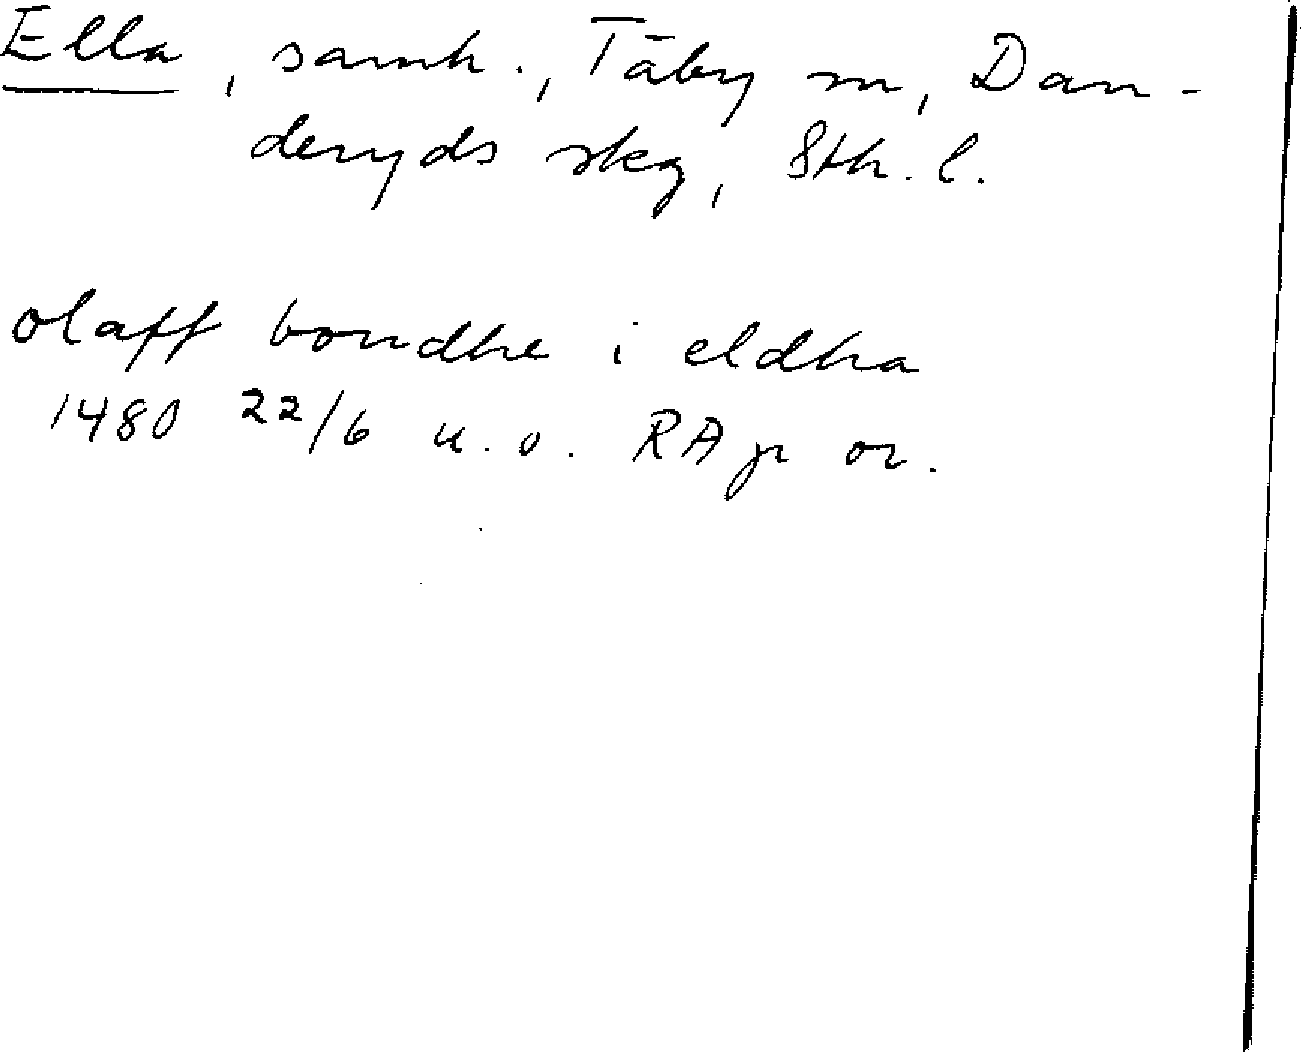 Ella, samh., Täby sn, Dan-
deryds skg, Sth. l.
olaff bondhe i eldha
1480 22/6 u.o. RAp or.